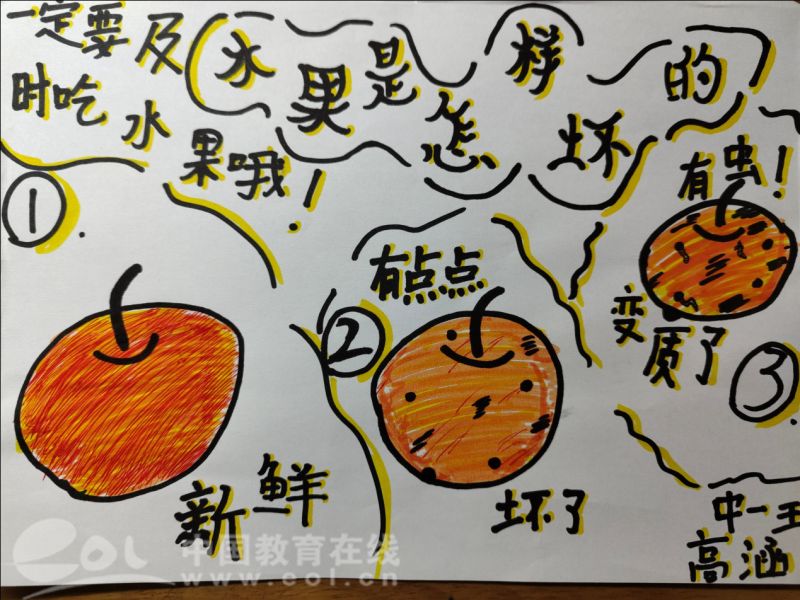 一定要及
时吃水果哦！
水果是怎样的
坏
有虫！
①.
有点点
②
变质了
③.
新鲜
坏了
中一王
高涵
eol 中国教育在线
www.eol.cn